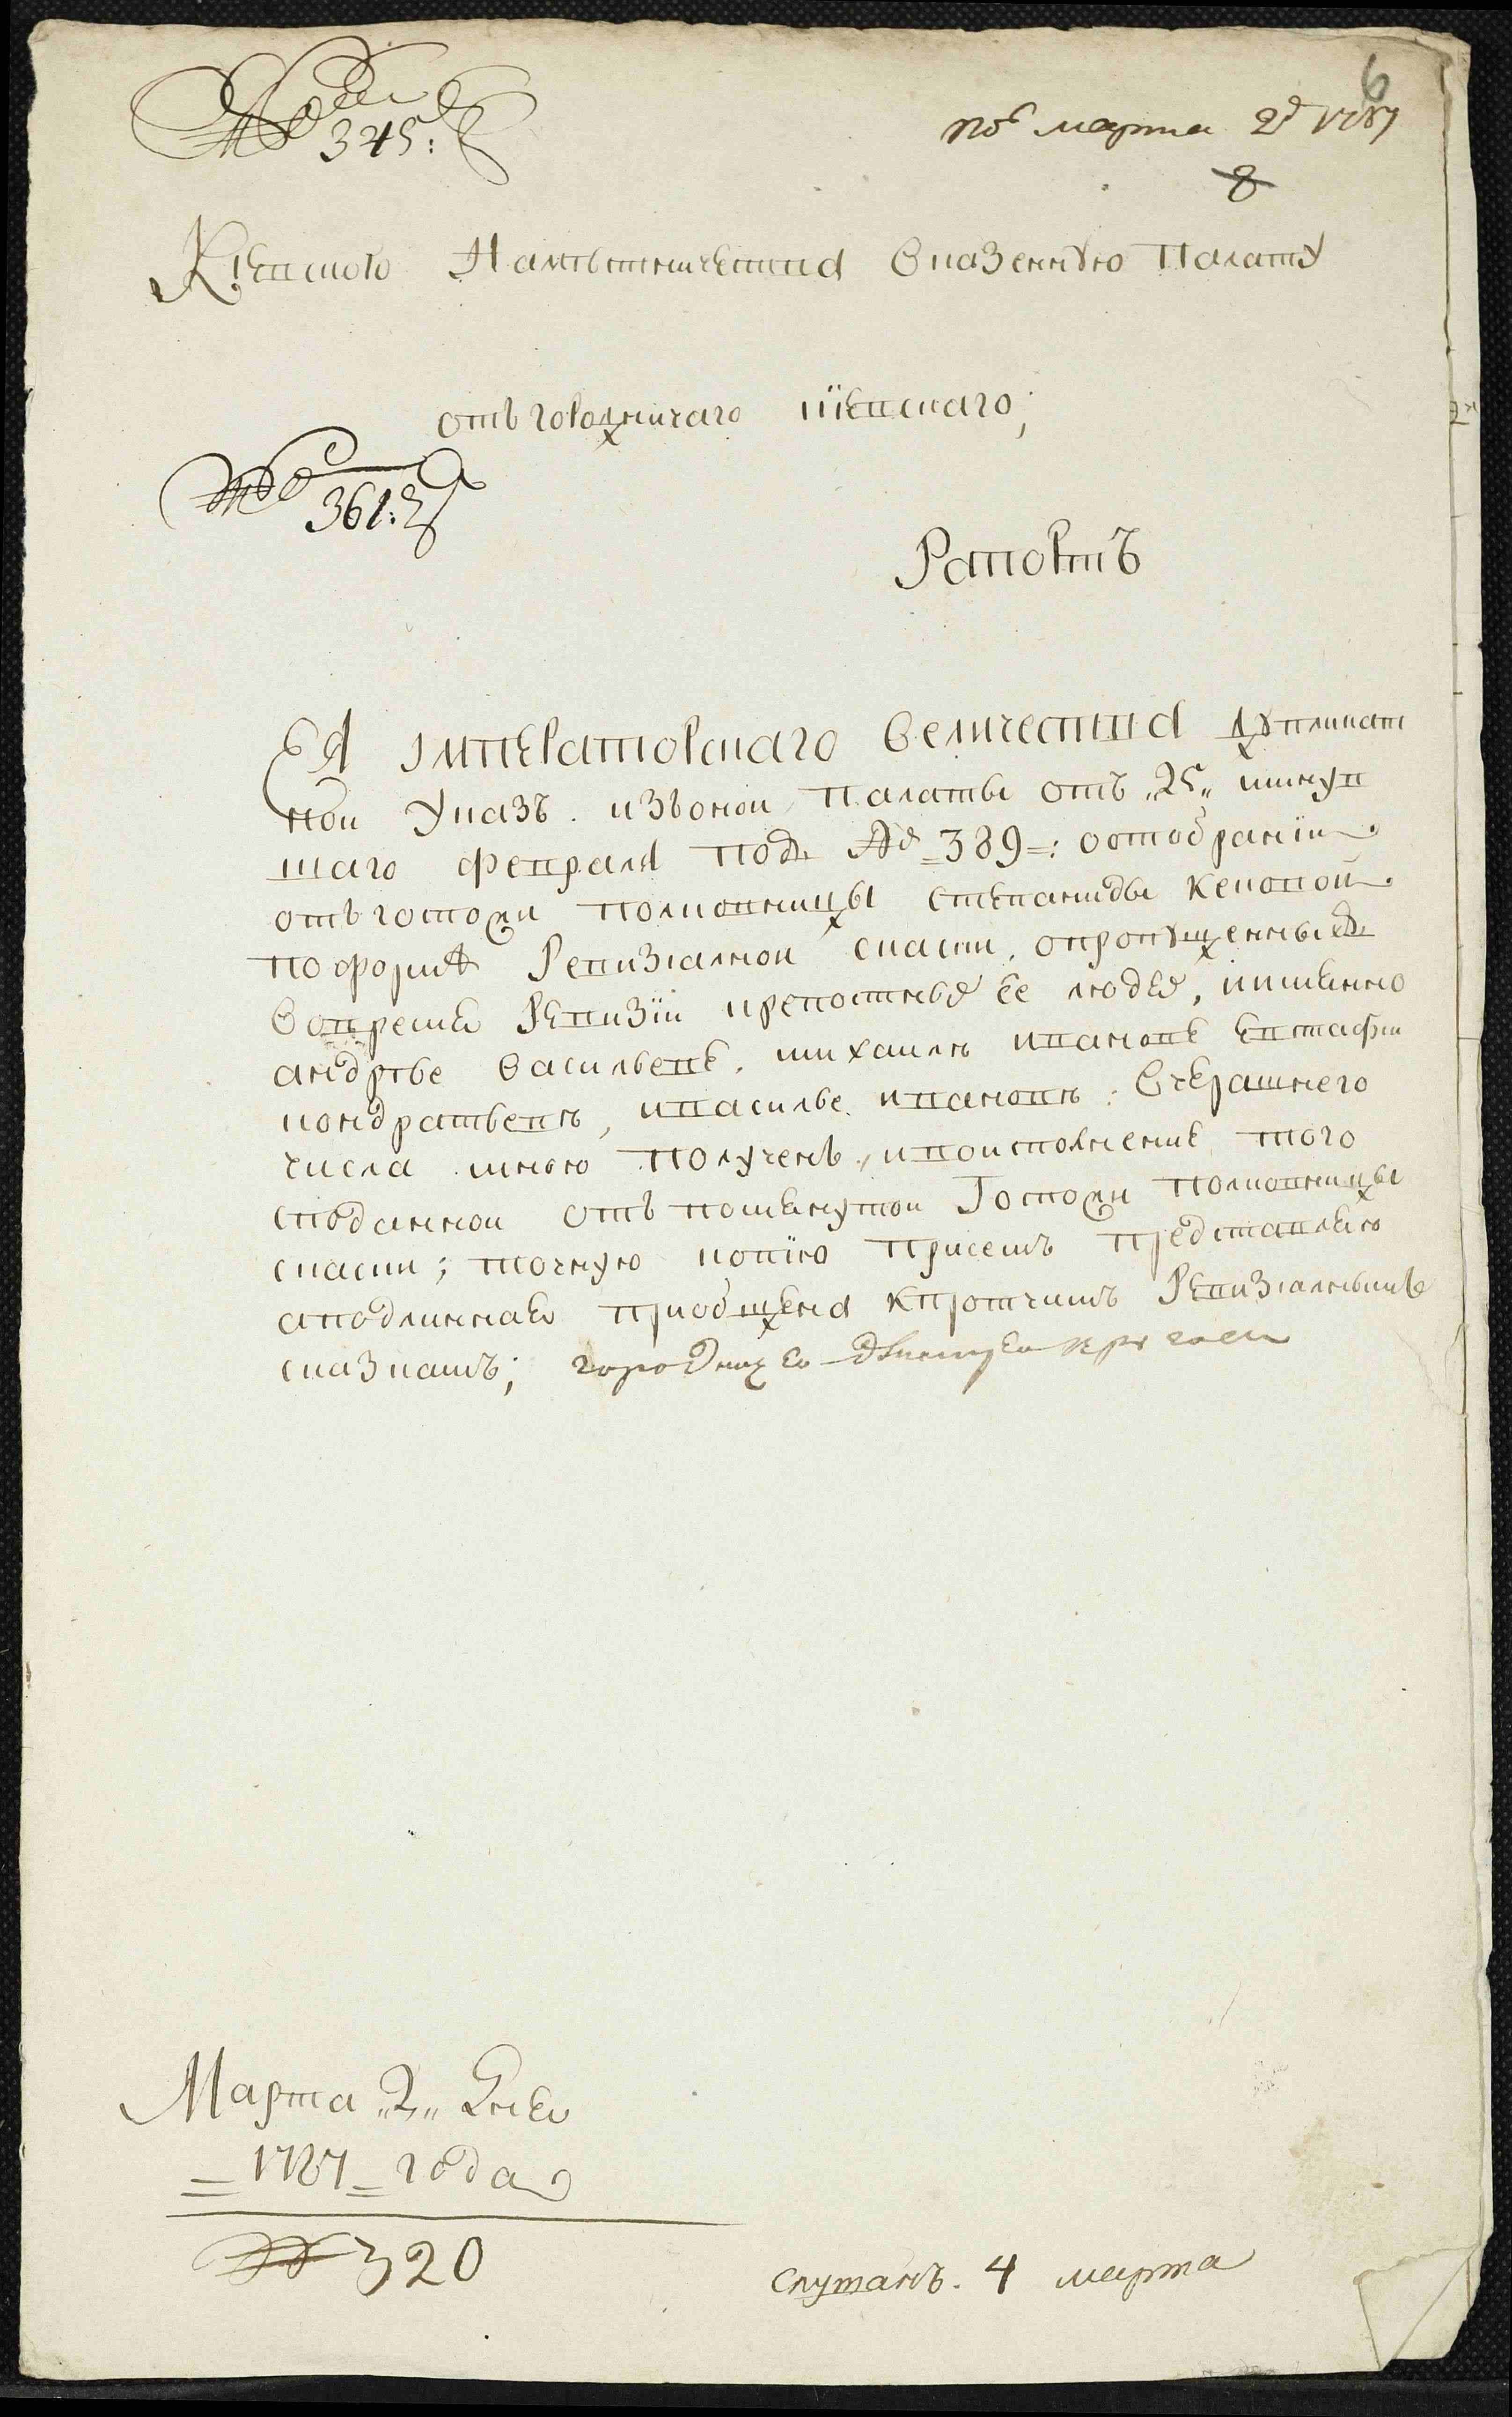 № 345:
6
по҃ марта 2д 1787
8
Кіевского Намѣстничества вказенную Палату
отъ городничаго кіевскаго;
№ 361:
Рапортъ
Ея Імператорскаго Величества дупликат
ной Указъ изъоной Палаты отъ „25„ минув
шаго февраля подъ № =389=: оотобраніи
отъ госпожи полковницы степаниды
поформѣ Ревизіалной скаски, опропущенныхъ
впрежню Ревизіи крепостныя ее людей, имменно
андрѣе васильеве, михаилѣ иванове евстафіи
кондратьевѣ, ивасилье ивановѣ; вчерашнего
числа мною полученъ, ивоисполнение того
споданной отъ помянутой Госпожи полковницы
скаски; точную копію присемъ представляю
аподлинная приобщена кпротчимъ Ревизіалнымъ
сказкамъ; городничей
Марта „2„ дня
=1787= года
№ 320
слушанъ. 4 марта